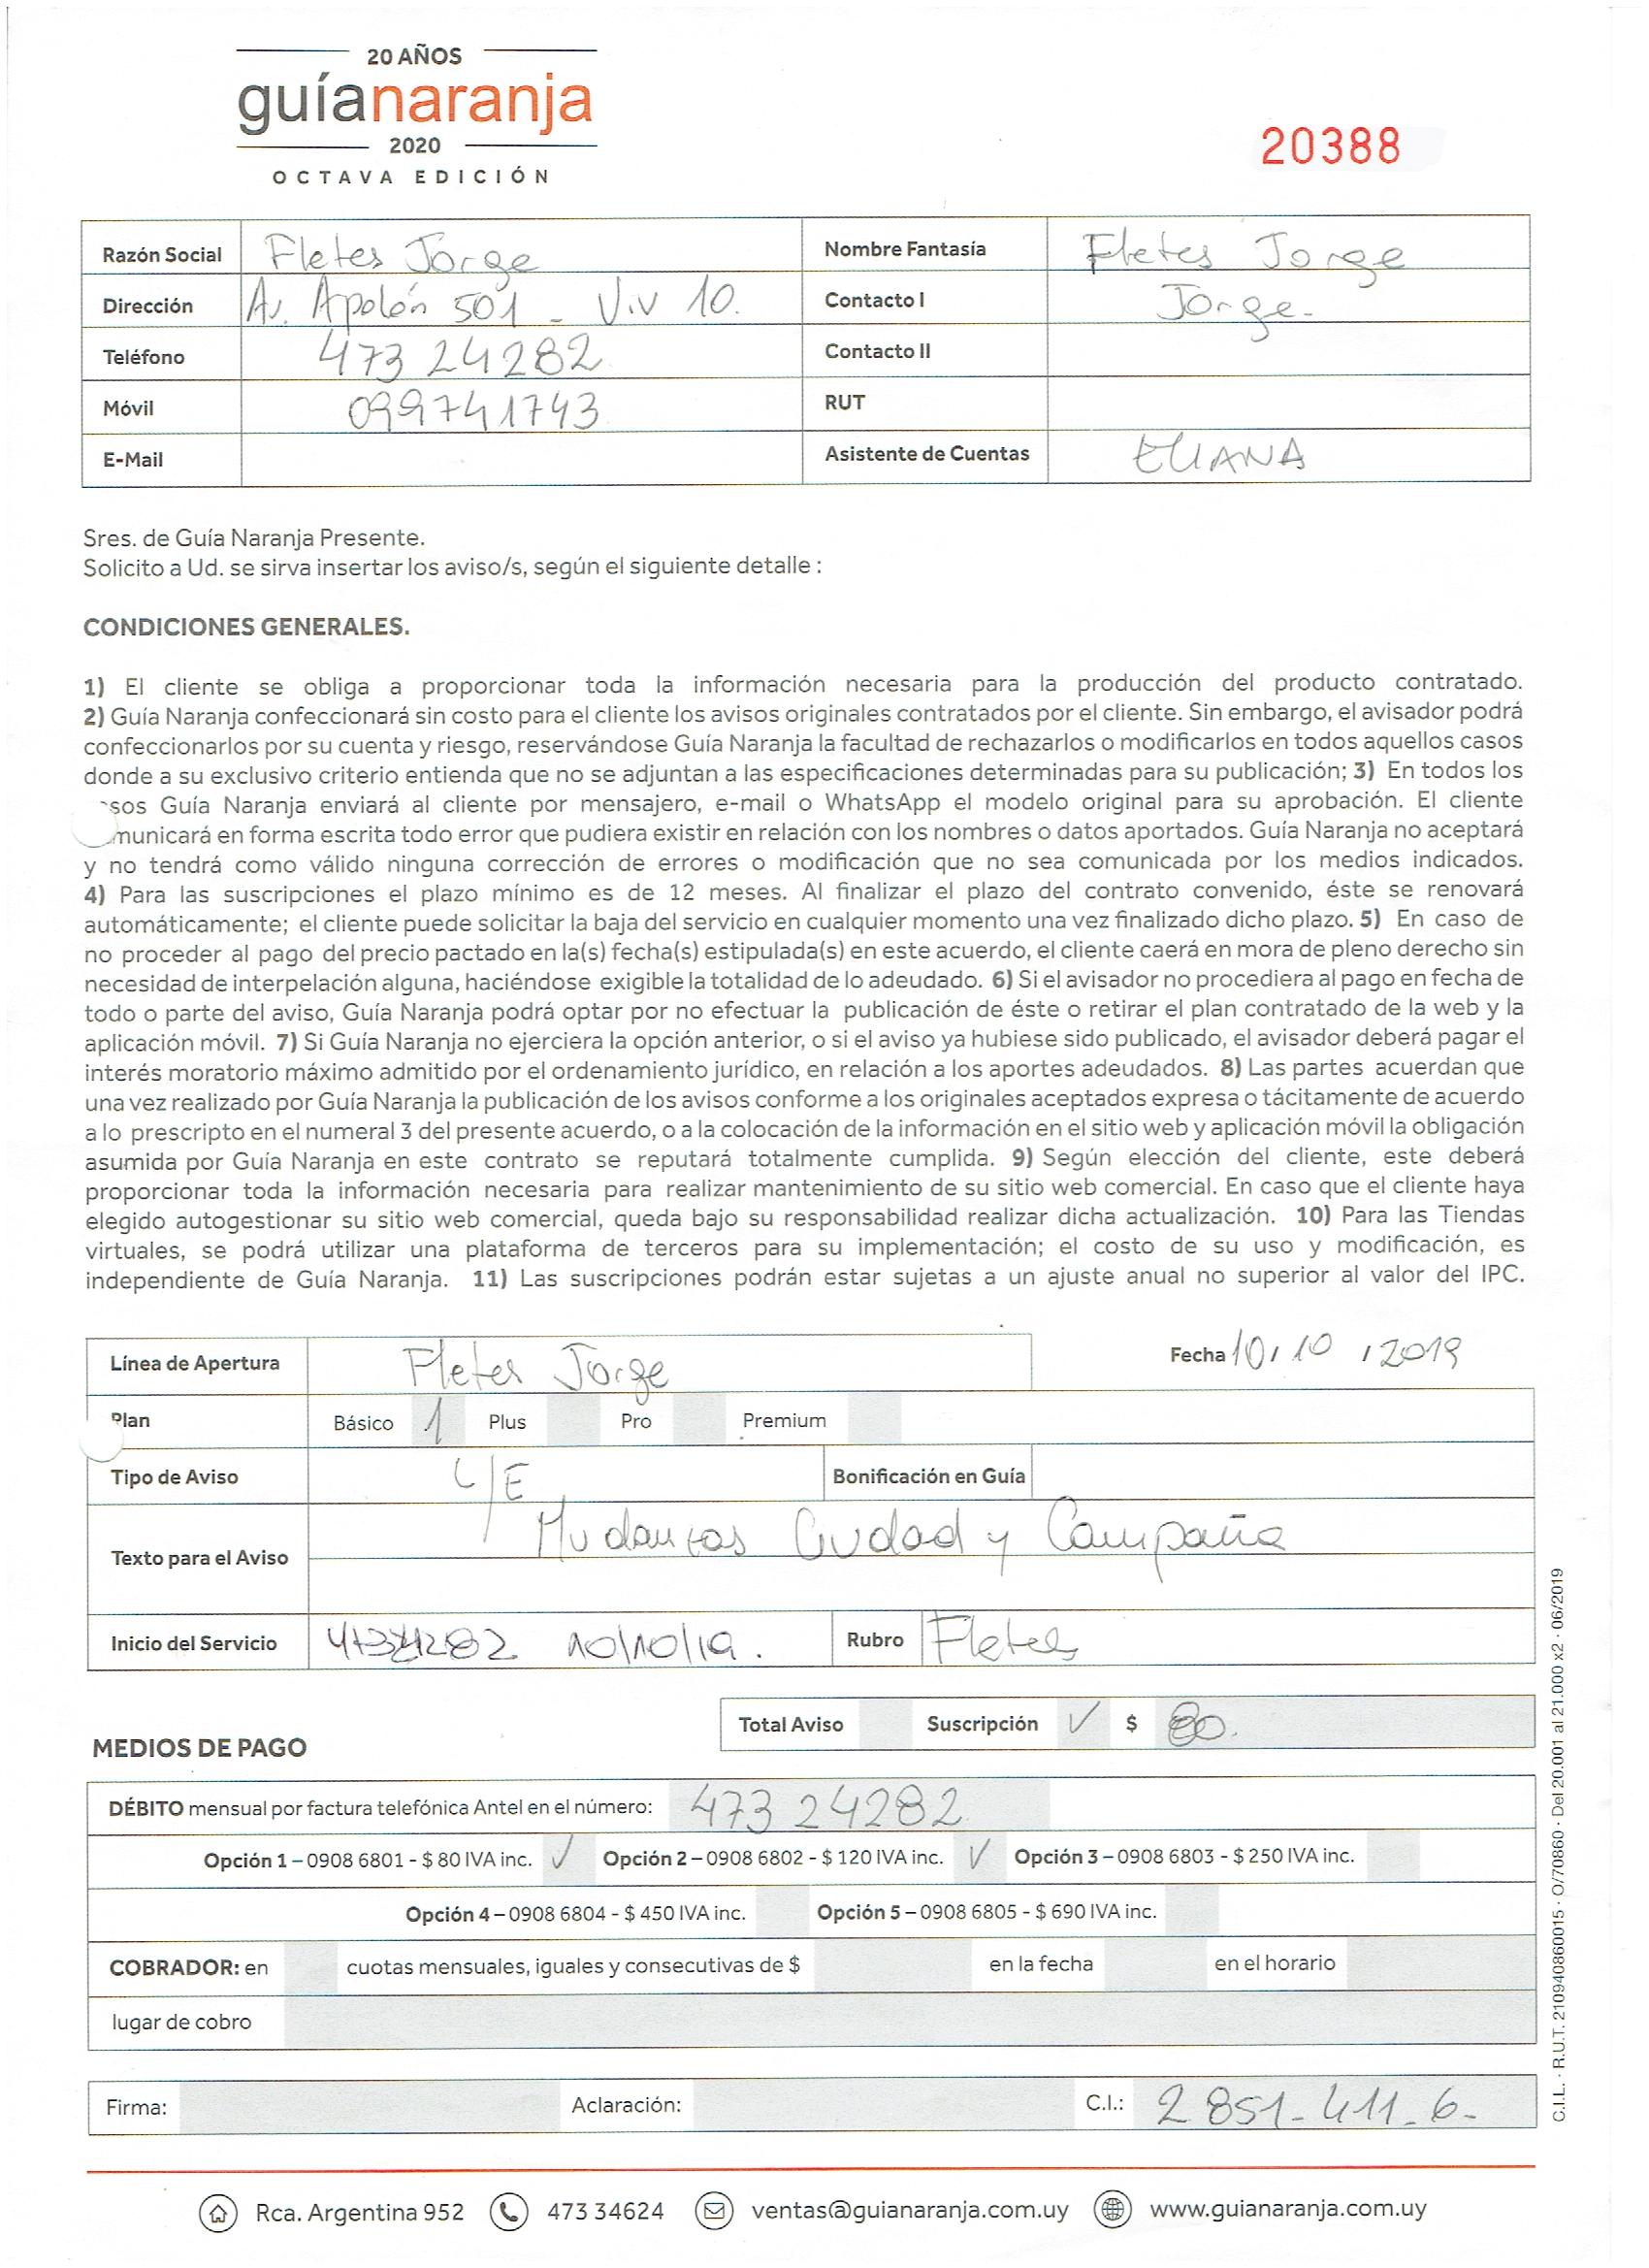 20 AÑOS
guíanaranja
2020
OCTAVA EDICIÓN
20388
Razón Social Fletes Jorge Nombre Fantasía Fletes Jorge
Dirección Av. Apolón 501 - Viv 10. Contacto I Jorge.
Teléfono 473 24282 Contacto II
Móvil 099741743 RUT
E-Mail Asistente de Cuentas ELIANA
Sres. de Guía Naranja Presente.
Solicito a Ud. se sirva insertar los aviso/s, según el siguiente detalle :
CONDICIONES GENERALES.
1) El cliente se obliga a proporcionar toda la información necesaria para la producción del producto contratado.
2) Guía Naranja confeccionará sin costo para el cliente los avisos originales contratados por el cliente. Sin embargo, el avisador podrá
confeccionarlos por su cuenta y riesgo, reservándose Guía Naranja la facultad de rechazarlos o modificarlos en todos aquellos casos
donde a su exclusivo criterio entienda que no se adjuntan a las especificaciones determinadas para su publicación; 3) En todos los
sos Guía Naranja enviará al cliente por mensajero, e-mail o WhatsApp el modelo original para su aprobación. El cliente
municará en forma escrita todo error que pudiera existir en relación con los nombres o datos aportados. Guía Naranja no aceptará
y no tendrá como válido ninguna corrección de errores o modificación que no sea comunicada por los medios indicados.
4) Para las suscripciones el plazo mínimo es de 12 meses. Al finalizar el plazo del contrato convenido, éste se renovará
automáticamente; el cliente puede solicitar la baja del servicio en cualquier momento una vez finalizado dicho plazo. 5) En caso de
no proceder al pago del precio pactado en la(s) fecha(s) estipulada(s) en este acuerdo, el cliente caerá en mora de pleno derecho sin
necesidad de interpelación alguna, haciéndose exigible la totalidad de lo adeudado. 6) Si el avisador no procediera al pago en fecha de
todo o parte del aviso, Guía Naranja podrá optar por no efectuar la publicación de éste o retirar el plan contratado de la web y la
aplicación móvil. 7) Si Guía Naranja no ejerciera la opción anterior, o si el aviso ya hubiese sido publicado, el avisador deberá pagar el
interés moratorio máximo admitido por el ordenamiento jurídico, en relación a los aportes adeudados. 8) Las partes acuerdan que
una vez realizado por Guía Naranja la publicación de los avisos conforme a los originales aceptados expresa o tácitamente de acuerdo
a lo prescripto en el numeral 3 del presente acuerdo, o a la colocación de la información en el sitio web y aplicación móvil la obligación
asumida por Guía Naranja en este contrato se reputará totalmente cumplida. 9) Según elección del cliente, este deberá
proporcionar toda la información necesaria para realizar mantenimiento de su sitio web comercial. En caso que el cliente haya
elegido autogestionar su sitio web comercial, queda bajo su responsabilidad realizar dicha actualización. 10) Para las Tiendas
virtuales, se podrá utilizar una plataforma de terceros para su implementación; el costo de su uso y modificación, es
independiente de Guía Naranja. 11) Las suscripciones podrán estar sujetas a un ajuste anual no superior al valor del IPC.
Línea de Apertura Fletes Jorge Fecha 10 / 10 / 2019
Plan Básico 1 Plus Pro Premium
Tipo de Aviso L/E Bonificación en Guía
Texto para el Aviso Mudanzas Ciudad y Campaña
Inicio del Servicio 10/10/19. Rubro Fletes
Total Aviso Suscripción ✓ $ 80.
MEDIOS DE PAGO
DÉBITO mensual por factura telefónica Antel en el número: 473 24282
Opción 1 – 0908 6801 - $ 80 IVA inc. ✓ Opción 2 – 0908 6802 - $ 120 IVA inc. ✓ Opción 3 – 0908 6803 - $ 250 IVA inc.
Opción 4 – 0908 6804 - $ 450 IVA inc. Opción 5 – 0908 6805 - $ 690 IVA inc.
COBRADOR: en cuotas mensuales, iguales y consecutivas de $ en la fecha en el horario
lugar de cobro
Firma: Aclaración: C.I.: 2 851-411-6-
Rca. Argentina 952 473 34624 ventas@guianaranja.com.uy www.guianaranja.com.uy
C.I.L. · R.U.T. 210940860015 · O/70860 · Del 20.001 al 21.000 x2 · 06/2019